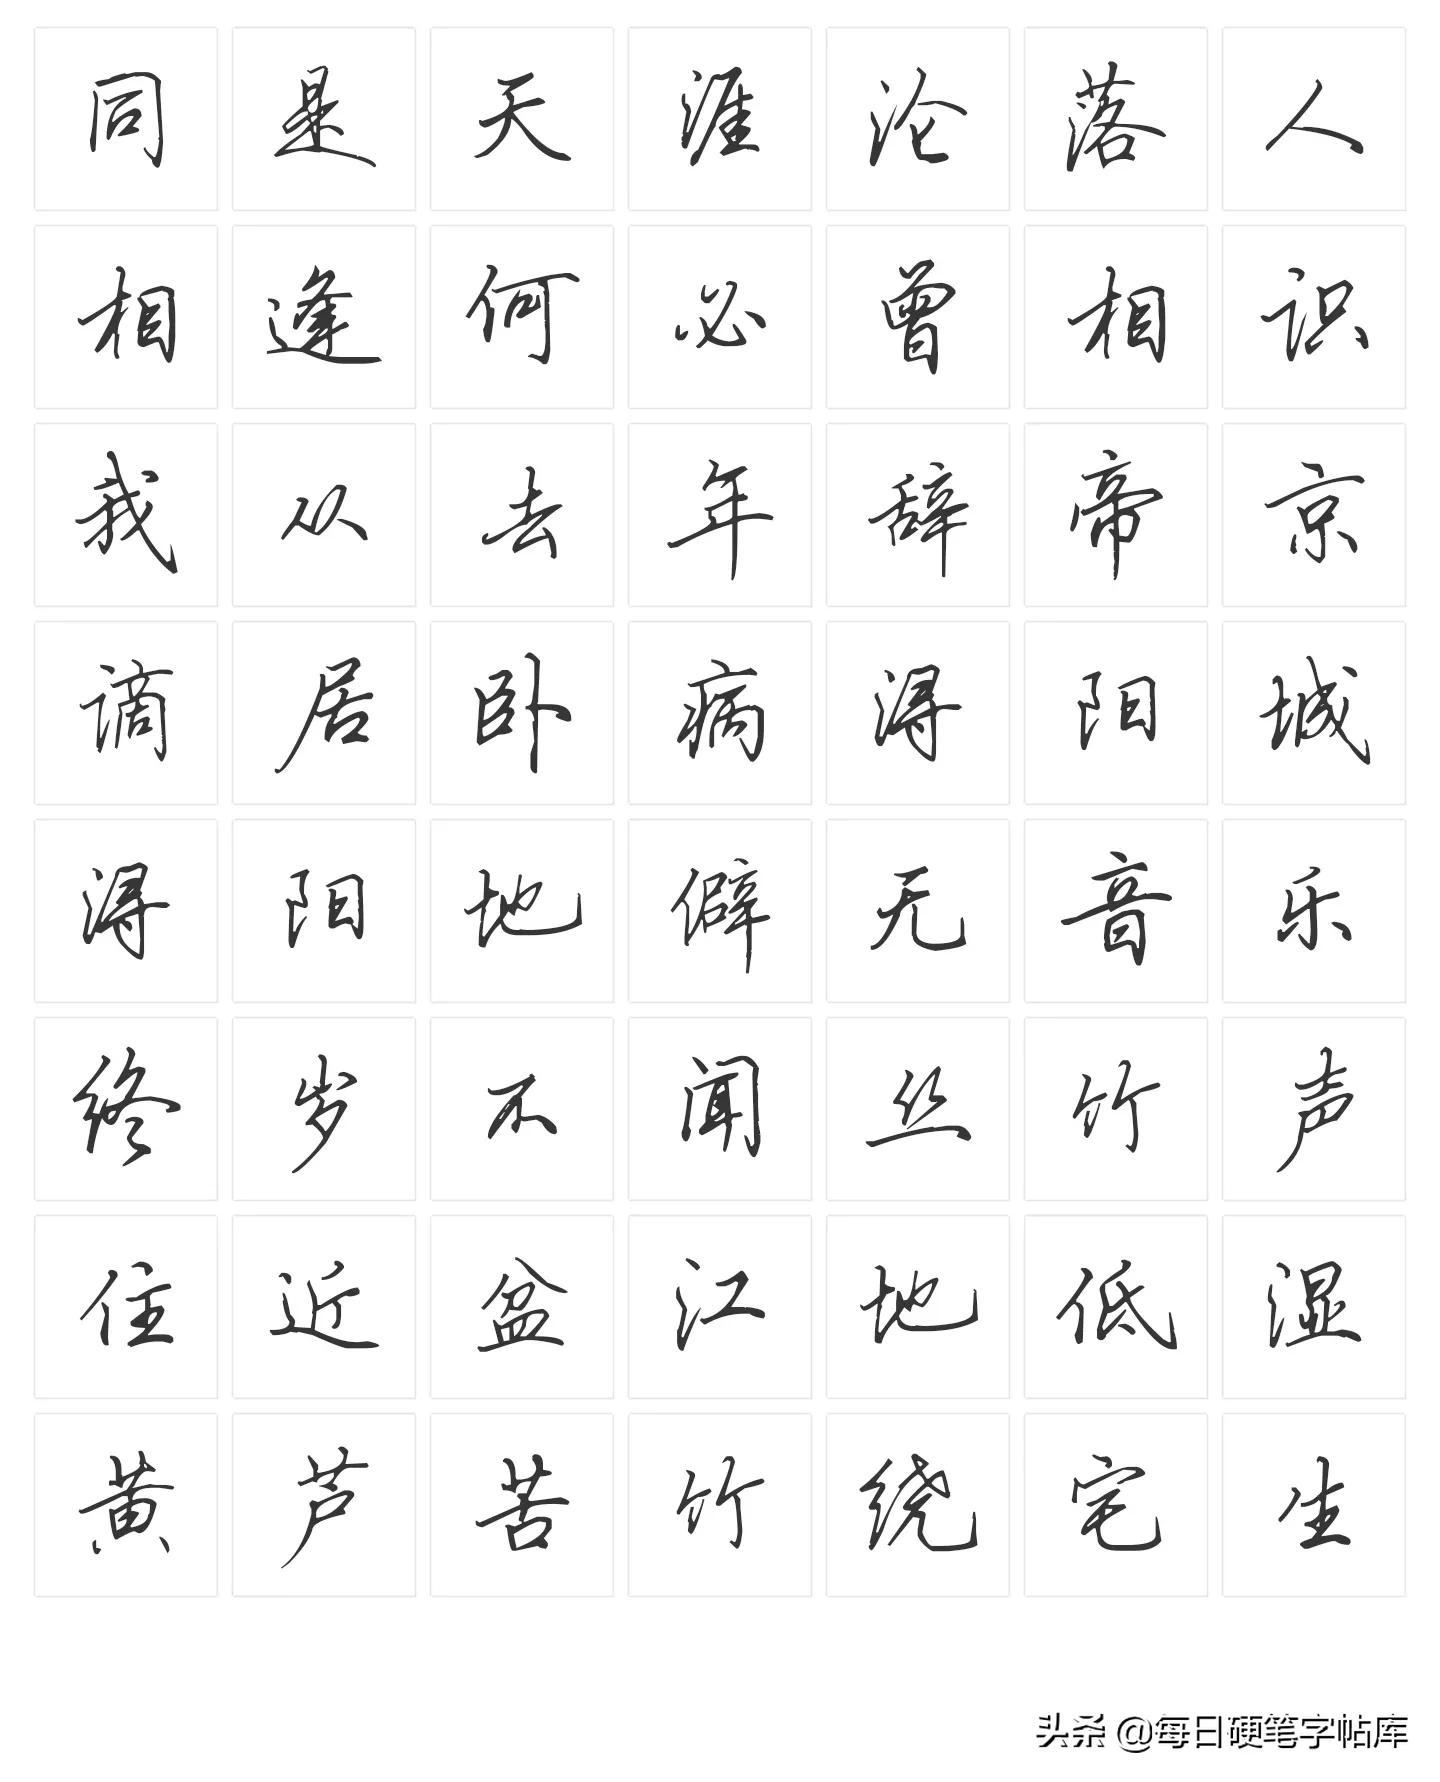 同是天涯沦落人
相逢何必曾相识
我从去年辞帝京
谪居卧病浔阳城
浔阳地僻无音乐
终岁不闻丝竹声
住近盆江地低湿
黄芦苦竹绕宅生
头条 @每日硬笔字帖库